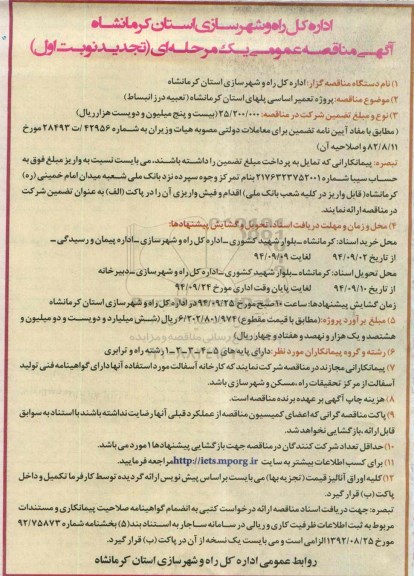 اداره کل راه و شهرسازی استان کرمانشاه
آگهی مناقصه عمومی یک مرحله ای (تجدید نوبت اول)
۱) نام دستگاه مناقصه گزار: اداره کل راه و شهرسازی استان کرمانشاه
۲) موضوع مناقصه: پروژه تعمیر اساسی پلهای استان کرمانشاه (تعبیه درز انبساط)
۳) نوع و مبلغ تضمین شرکت در مناقصه: ۲۵/۲۰۰/۰۰۰ (بیست و پنج میلیون و دویست هزار ریال)
(مطابق با مفاد آیین نامه تضمین برای معاملات دولتی مصوبه هیات وزیران به شماره ۴۲۹۵۶/ت ۲۸۴۹۳ مورخ
۸۲/۸/۱۱ و اصلاحیه آن)
تبصره: پیمانکارانی که تمایل به پرداخت مبلغ تضمین را داشته باشند، می بایست نسبت به واریز مبلغ فوق به
حساب سیبا شماره ۲۱۷۶۴۴۳۷۵۲۰۰۱ بنام تمرکز وجوه سپرده نزد بانک ملی شعبه میدان امام خمینی (ره)
کرمانشاه (قابل واریز در کلیه شعب بانک ملی) اقدام و فیش واریزی آن را در پاکت (الف) به عنوان تضمین شرکت
در مناقصه ارائه نمایند.
۴) محل و زمان و مهلت دریافت اسناد، تحویل و گشایش پیشنهادها:
محل خرید اسناد: کرمانشاه ـ بلوار شهید کشوری ـ اداره کل راه و شهرسازی ـ اداره پیمان و رسیدگی ـ
از تاریخ ۹۴/۰۹/۰۲ لغایت ۹۴/۰۹/۰۹
محل تحویل اسناد: کرمانشاه ـ بلوار شهید کشوری ـ اداره کل راه و شهرسازی ـ دبیرخانه
از تاریخ ۹۴/۰۹/۱۰ لغایت پایان وقت اداری مورخ ۹۴/۰۹/۲۴
زمان گشایش پیشنهادها: ساعت ۱۰ صبح مورخ ۹۴/۰۹/۲۵ در اداره کل راه و شهرسازی استان کرمانشاه
۵) مبلغ برآورد پروژه: (مطابق با قیمت مقطوع) ۶/۲۰۲/۸۰۱/۹۷۴ ریال (شش میلیارد و دویست و دو میلیون و
هشتصد و یک هزار و نهصد و هفتاد و چهار ریال)
۶) رشته و گروه پیمانکاران مورد نظر: دارای پایه های ۵-۴-۳-۲-۱ رشته راه و ترابری
۷) پیمانکارانی مجازند در مناقصه شرکت نمایند که کارخانه آسفالت مورد استفاده آنها دارای گواهینامه فنی تولید
آسفالت از مرکز تحقیقات راه، مسکن و شهرسازی باشد.
۸) هزینه چاپ آگهی بر عهده برنده مناقصه است.
۹) پاکت مناقصه گرانی که اعضای کمیسیون مناقصه از عملکرد قبلی آنها رضایت نداشته باشند با استناد به سوابق
قابل ارائه، بازگشایی نخواهد شد.
۱۰) حداقل تعداد شرکت کنندگان در مناقصه جهت بازگشایی پیشنهادها ۱ مورد می باشد.
۱۱) برای کسب اطلاعات بیشتر به سایت http://iets.mporg.ir مراجعه فرمایید.
۱۲) کلیه اوراق آنالیز قیمت (تجزیه بها) می بایست بر اساس پیش نویس ارائه گردیده توسط کارفرما تکمیل و داخل
پاکت (ب) قرار گیرد.
تبصره: جهت دریافت اسناد مناقصه ارائه درخواست کتبی به انضمام گواهینامه صلاحیت پیمانکاری و مستندات
مربوط به ثبت اطلاعات ظرفیت کاری و ریالی در سامانه ساجار به استناد بند (۵) بخشنامه شماره ۹۲/۷۵۸۷۳
مورخ ۱۳۹۲/۰۸/۲۵ الزامی است و می بایست یک نسخه از آن در پاکت (ب) قرار گیرد.
روابط عمومی اداره کل راه و شهرسازی استان کرمانشاه